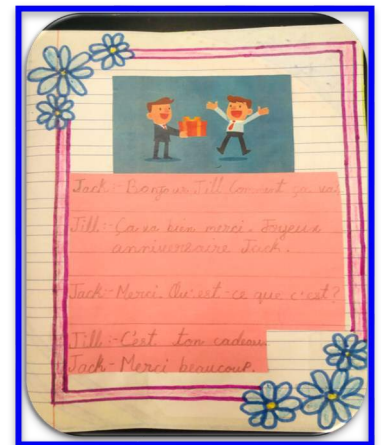 Jack:- Bonjour Jill Comment ça va?
Jill:- Ça va bien merci. Joyeux
anniversaire Jack.
Jack- Merci. Qu'est-ce que c'est?
Jill:- C'est ton cadeau
Jack- Merci beaucoup.